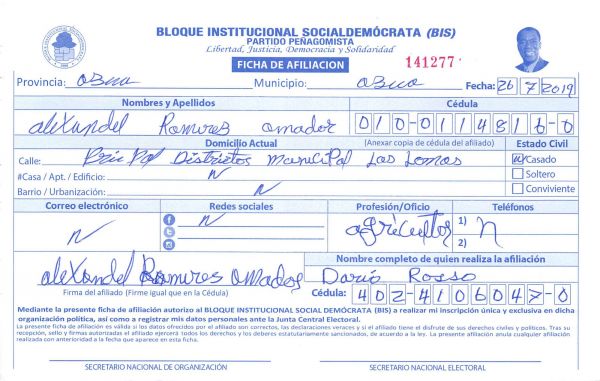 BLOQUE INSTITUCIONAL SOCIALDEMÓCRATA (BIS)
PARTIDO PEÑAGOMISTA
Libertad, Justicia, Democracia y Solidaridad
FICHA DE AFILIACION 141277
Provincia: Municipio: Fecha: 26 7 2019
Nombres y Apellidos Cédula
alexandel Ramires amador 010-0114816-0
Domicilio Actual (Anexar copia de cédula del afiliado) Estado Civil
Calle: Districtos Municipal Las Lomas Casado
#Casa / Apt. / Edificio: N Soltero
Barrio / Urbanización: N Conviviente
Correo electrónico Redes sociales Profesión/Oficio Teléfonos
N N agricultor 1) N
2)
Nombre completo de quien realiza la afiliación
alexandel Ramires amador Dario Rosso
Firma del afiliado (Firme igual que en la Cédula) Cédula: 402-4106047-0
Mediante la presente ficha de afiliación autorizo al BLOQUE INSTITUCIONAL SOCIAL DEMÓCRATA (BIS) a realizar mi inscripción única y exclusiva en dicha
organización política, así como a registrar mis datos personales ante la Junta Central Electoral.
La presente ficha de afiliación es válida si los datos ofrecidos por el afiliado son correctos, las declaraciones veraces y si el afiliado tiene el disfrute de sus derechos civiles y políticos. Tras su
recepción, sello y firmas autorizadas el afiliado ejercerá todos los derechos y los deberes estatutariamente sancionados, de acuerdo a la ley. La presente afiliación anula cualquier afiliación
realizada con anterioridad a la fecha que aparece en esta ficha.
SECRETARIO NACIONAL DE ORGANIZACIÓN SECRETARIO NACIONAL ELECTORAL